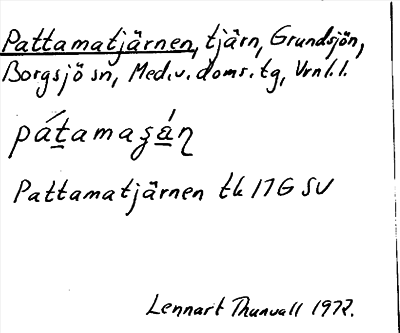 Pattamatjärnen, tjärn, Grundsjön,
Borgsjö sn, Med.v. doms.tg, Vrnl.l.
pá̱tamaʂá̱ɳ
Pattamatjärnen tk 17G SV
Lennart Thunvall 1972.